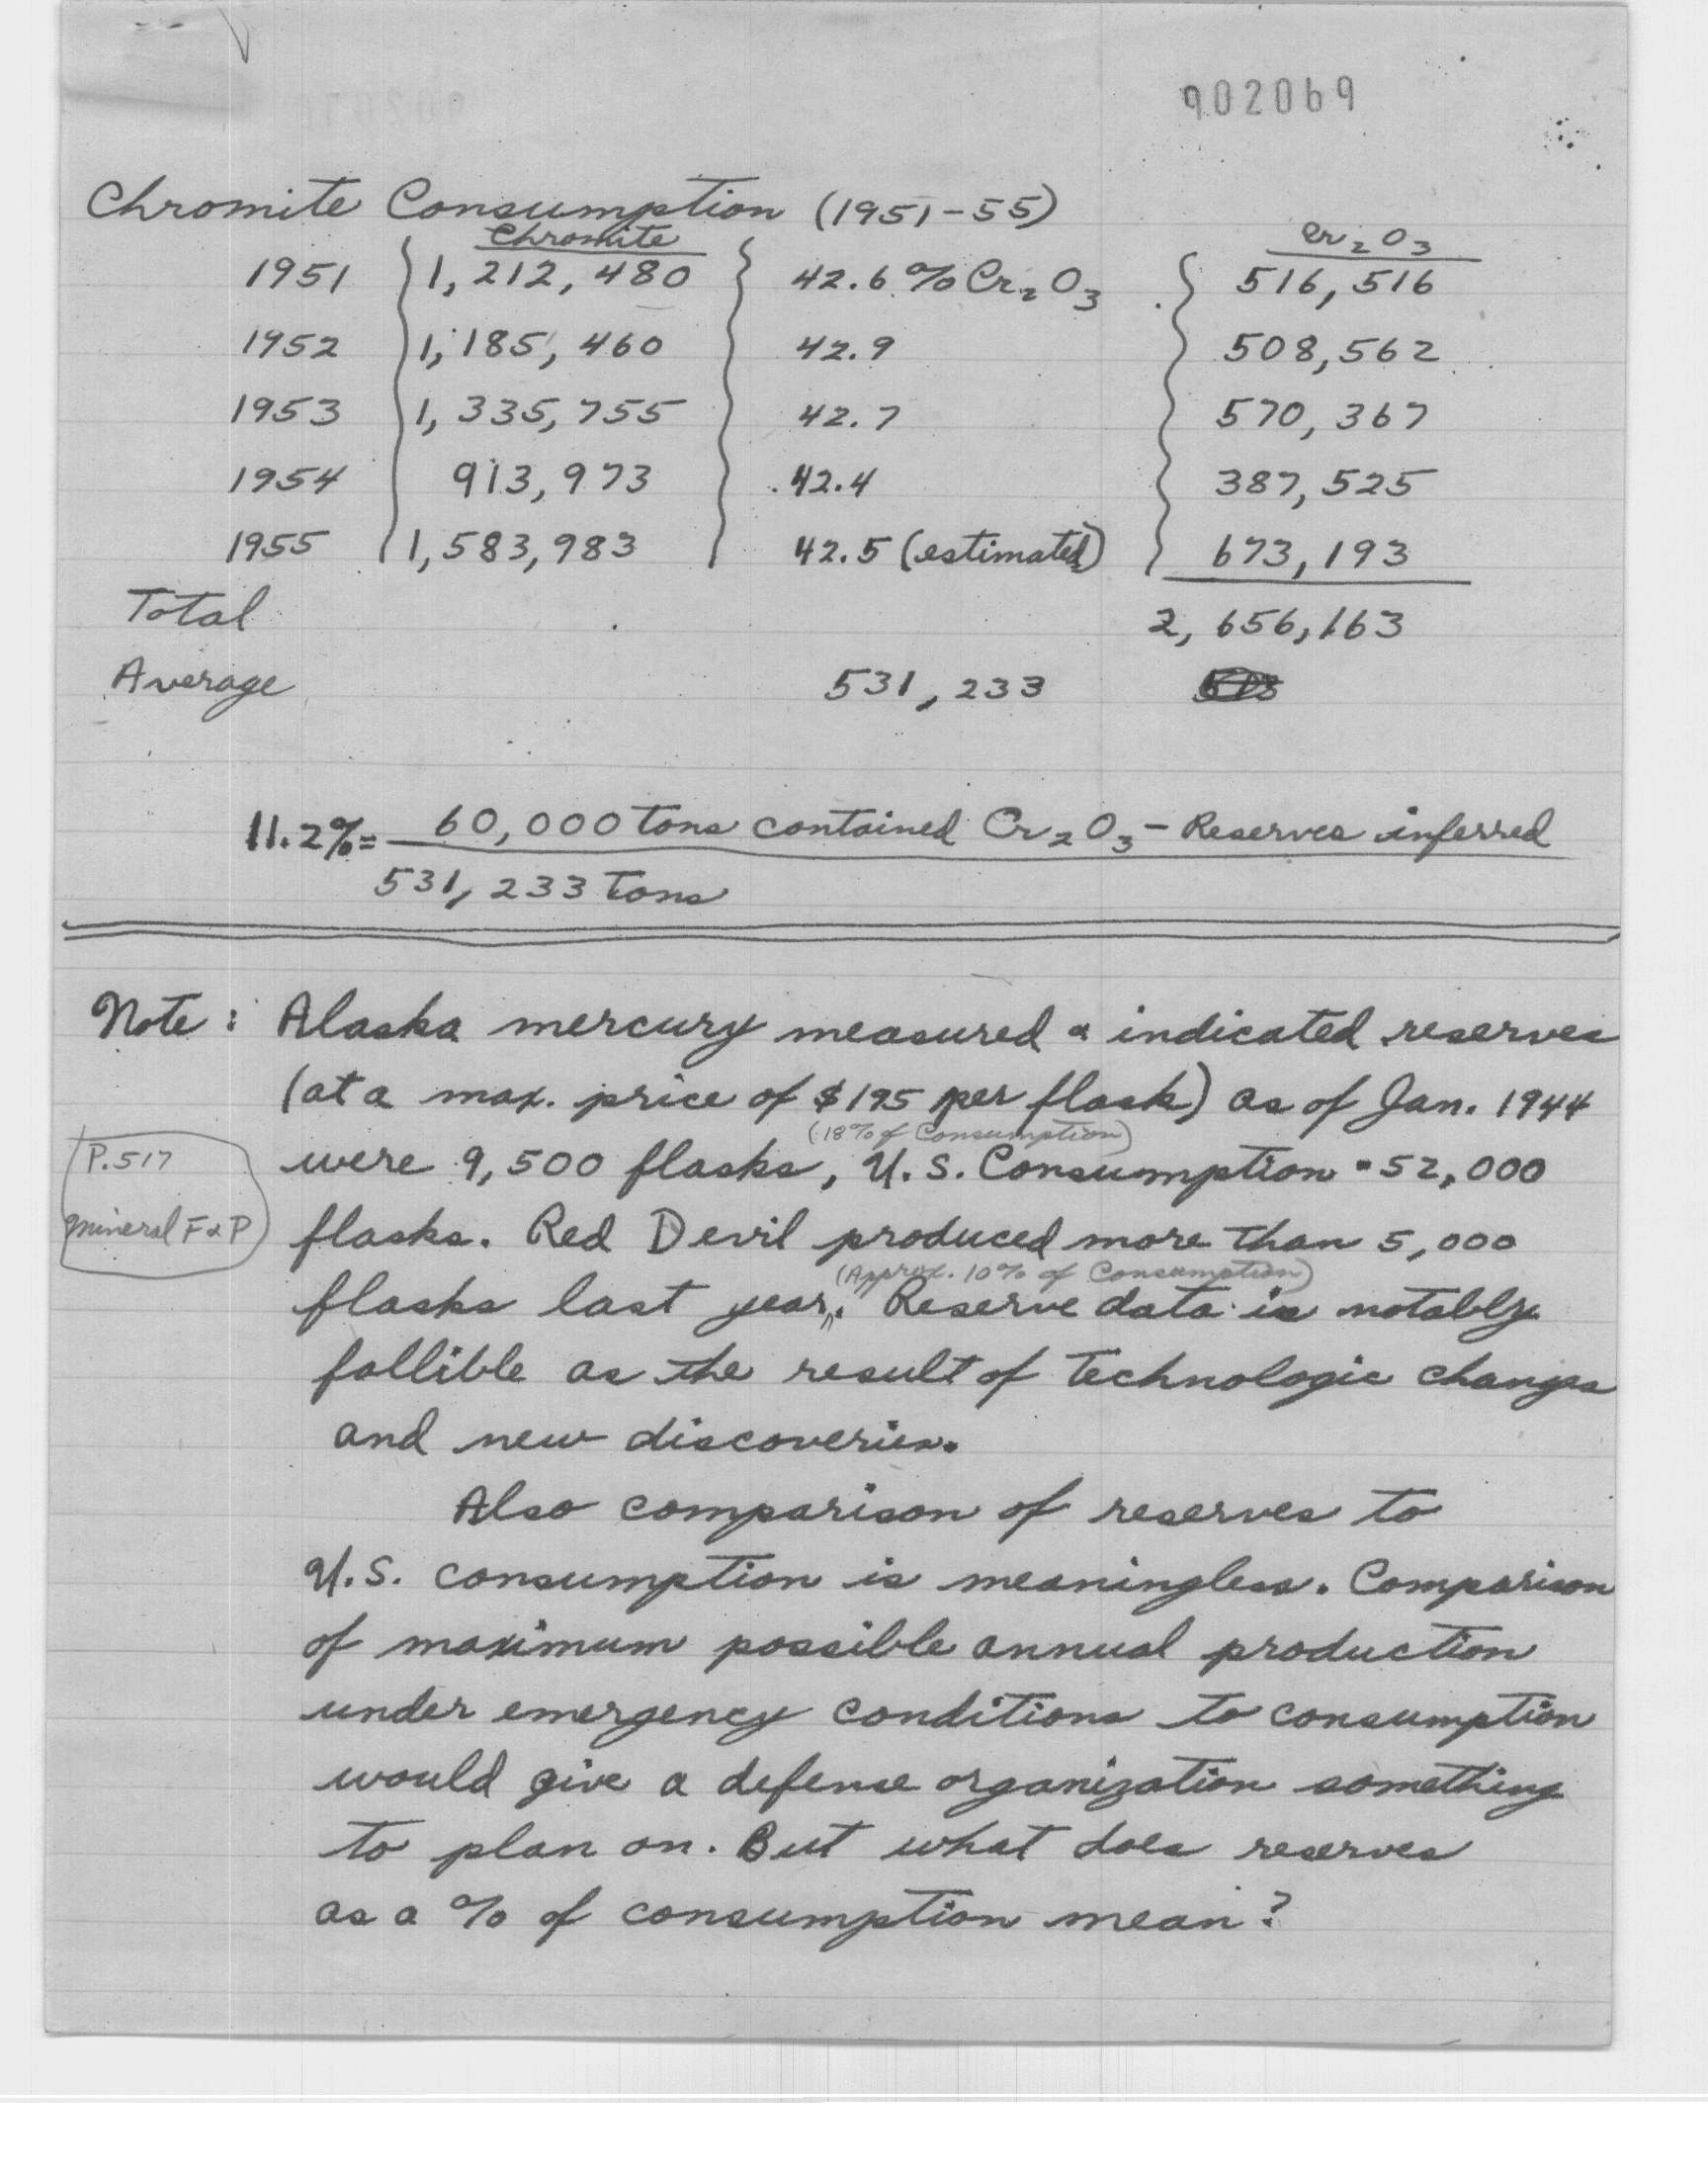 902069
Chromite Consumption (1951-55)
Chromite Cr2O3
1951 1,212,480 42.6% Cr2O3 516,516
1952 1,185,460 42.9 508,562
1953 1,335,755 42.7 570,367
1954 913,973 42.4 387,525
1955 1,583,983 42.5 (estimated) 673,193
Total 2,656,163
Average 531,233
11.2% = 60,000 tons contained Cr2O3 - Reserves inferred
531,233 Tons
Note: Alaska mercury measured & indicated reserves
(at a max. price of $195 per flask) as of Jan. 1944
(18% of Consumption)
were 9,500 flasks, U.S. Consumption = 52,000
P.517
Mineral F & P
flasks. Red Devil produced more than 5,000
(Approx. 10% of Consumption)
flasks last year. Reserve data is notably
fallible as the result of technologic changes
and new discoveries.
Also comparison of reserves to
U.S. consumption is meaningless. Comparison
of maximum possible annual production
under emergency conditions to consumption
would give a defense organization something
to plan on. But what does reserves
as a % of consumption mean?